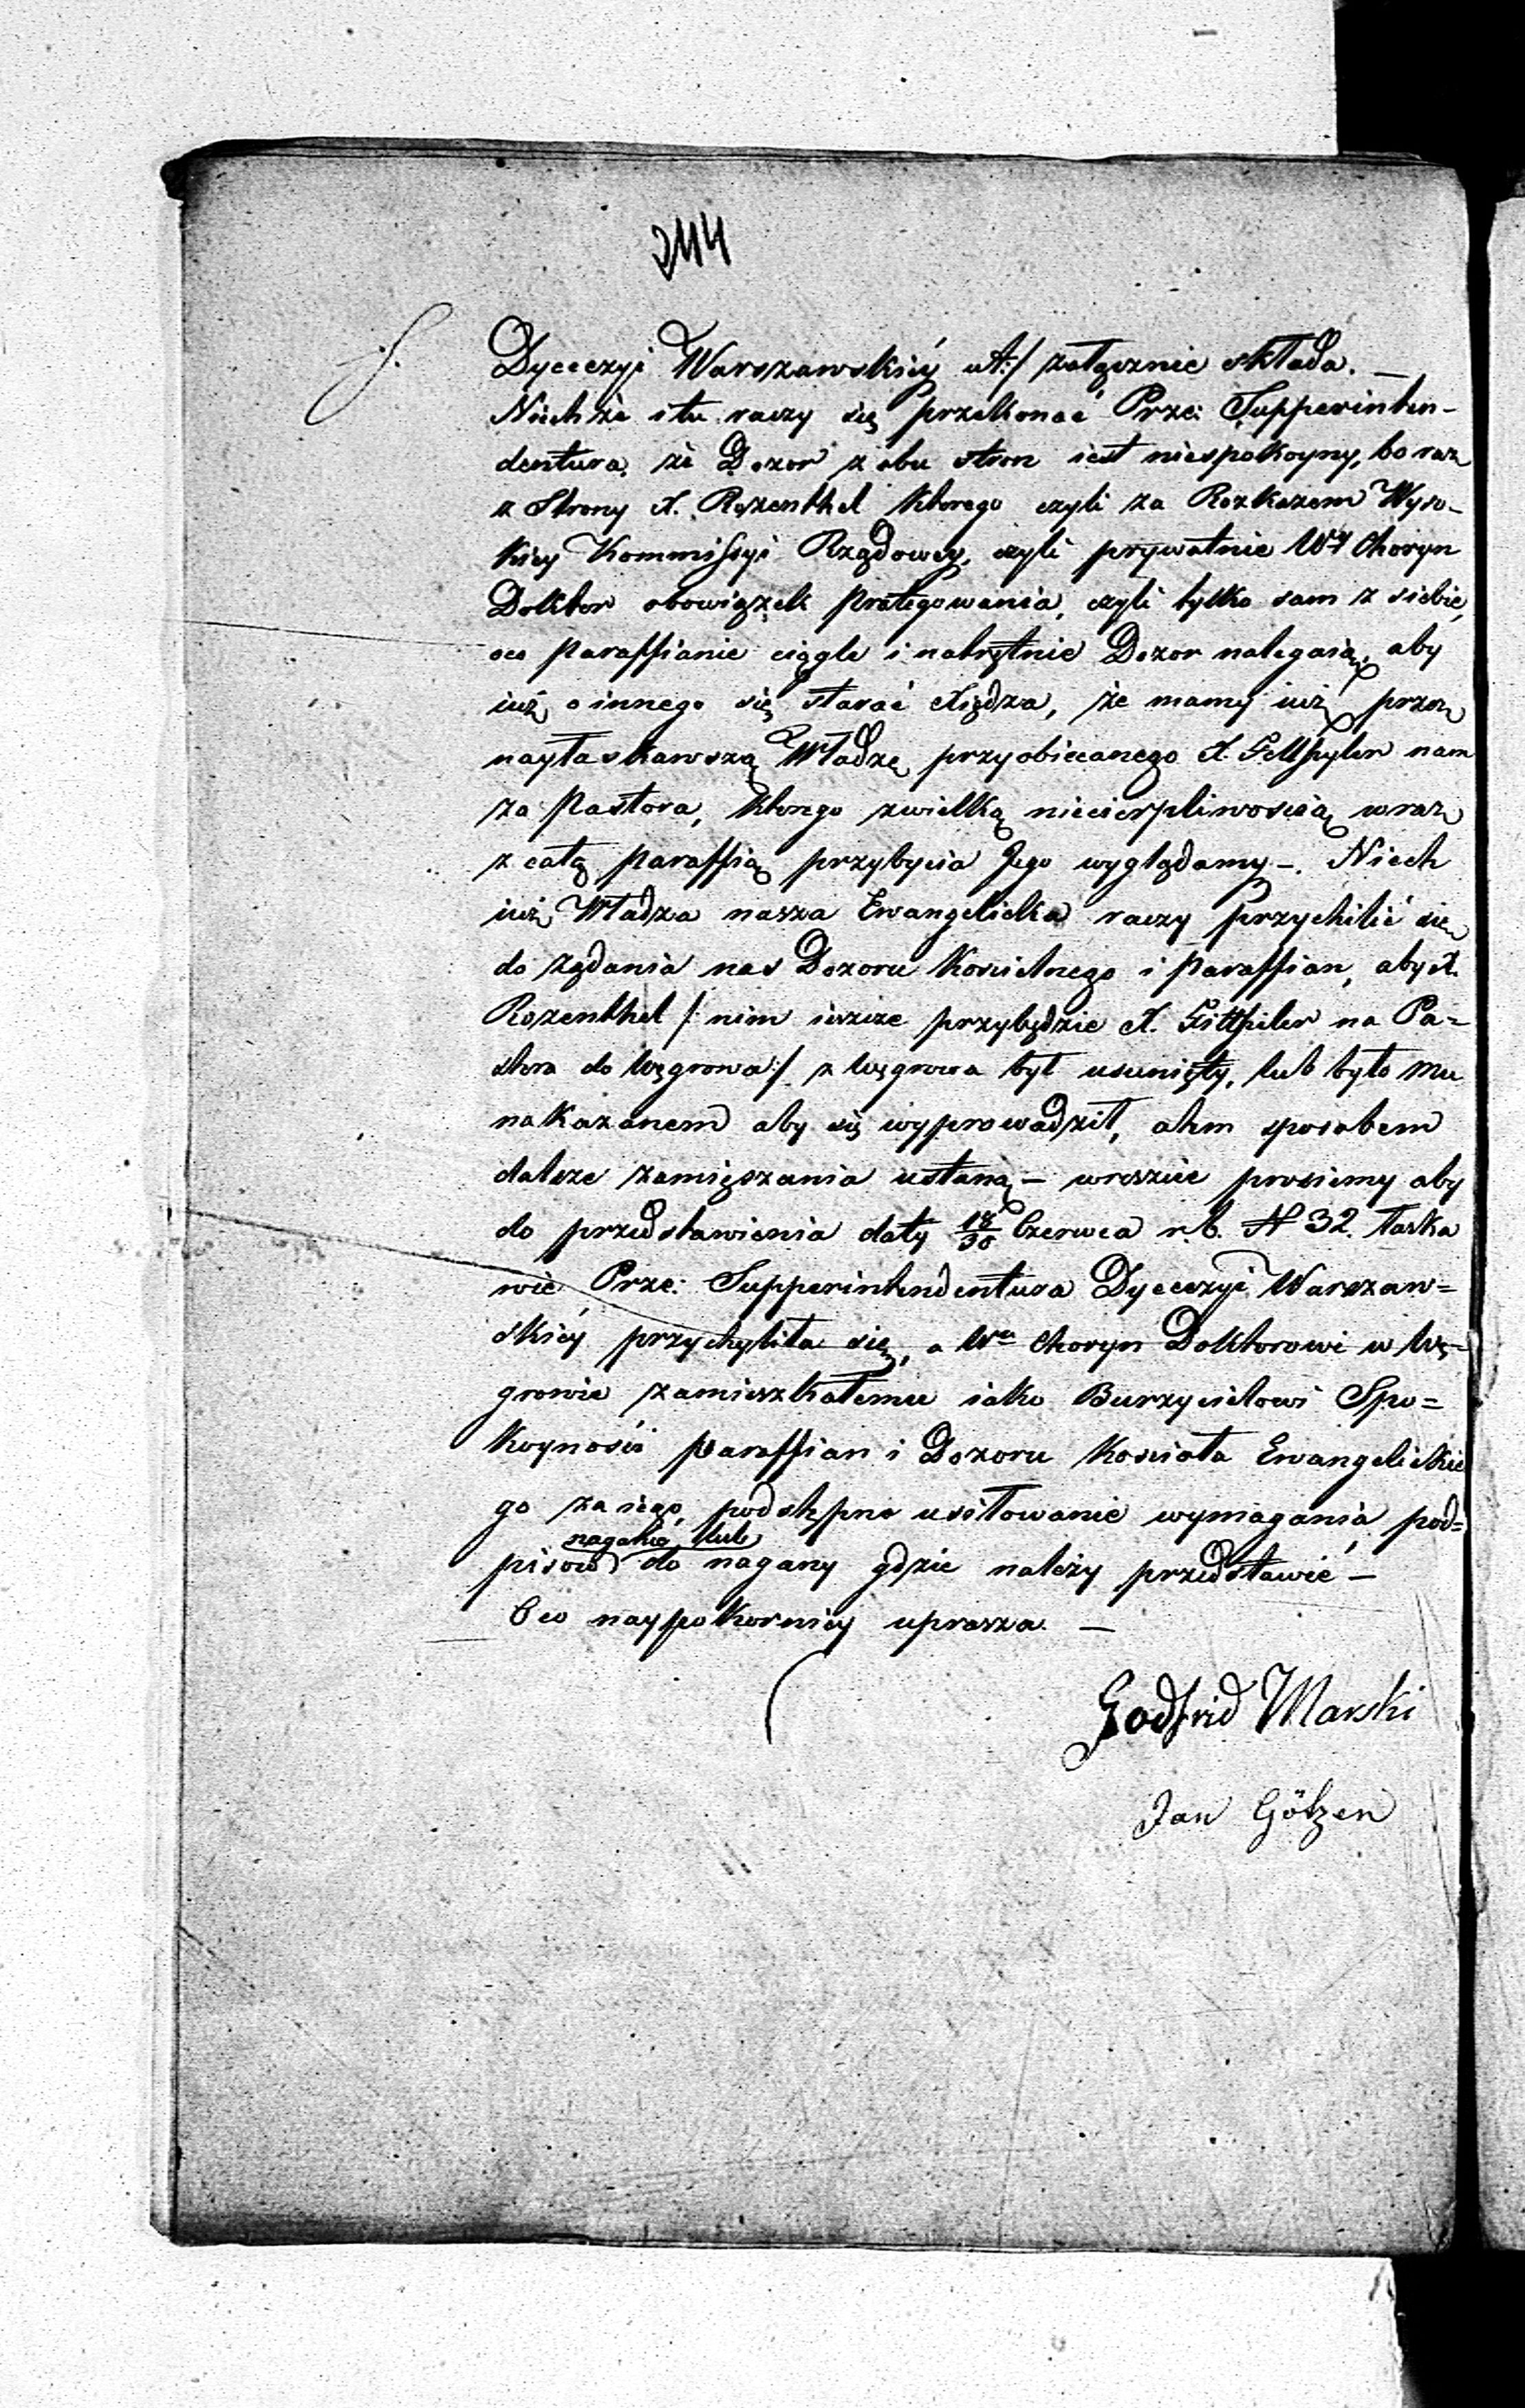 244
Dyecezyi Warszawskiéy ut:/ załącznie składa. —
Niechże i tu raczy się przekonać Prze: Supperinten-
dentura, że Dozor z obu stron iest niespokoyny, bo raz
z Strony X. Rozenthel ktorego czyli za Rozkazem Wyso-
kiey Kommissyi Rządowey, czyli prywatnie Wny Choryn
Doktor obowiązek protegowania, czyli tylko sam z siebie,
oco Paraffianie ciągle i natrętnie Dozor nalegaią, aby
iuż o innego się starać Xiędza, że mamy iuż przez
nayłaskawszą Władzę przyobiecanego X. nam
za Pastora, ktorego zwielką niecierpliwoscią wraz
z całą Paraffią przybycia Jego wyglądamy —. Niech
iuż Władza nasza Ewangelicka raczy Przychilić się
do żądania nas Dozoru Koscielnego i Paraffian, aby X.
Rozenthel /: nim ieszcze przybędzie X. na Pa=
stora do Węgrowa :/ z Węgrowa był usunięty, lub było mu
nakazanem aby się wyprowadził, a tem sposobem
dalsze zamięszania ustaną — wreszcie prosiemy aby
do przedstawienia daty 18/30 Czerwca r. b. N 32. łaska
wie Prze: Supperintendentura Dyecezyi Warszaw=
skiéy przychyliła się, a Wu Choryn Doktorowi w Wę-
growie zamieszkałemu iako Burzycielowi Spo=
koyności paraffian i Dozoru Koscioła Ewangelickie
go za iego, podstępne usiłowanie wymagania pod=
naganę lub
pisow do nagany gdzie należy przedstawić —
O co naypokorniéy uprasza. —
Godfrid Marski
Jan Götzen